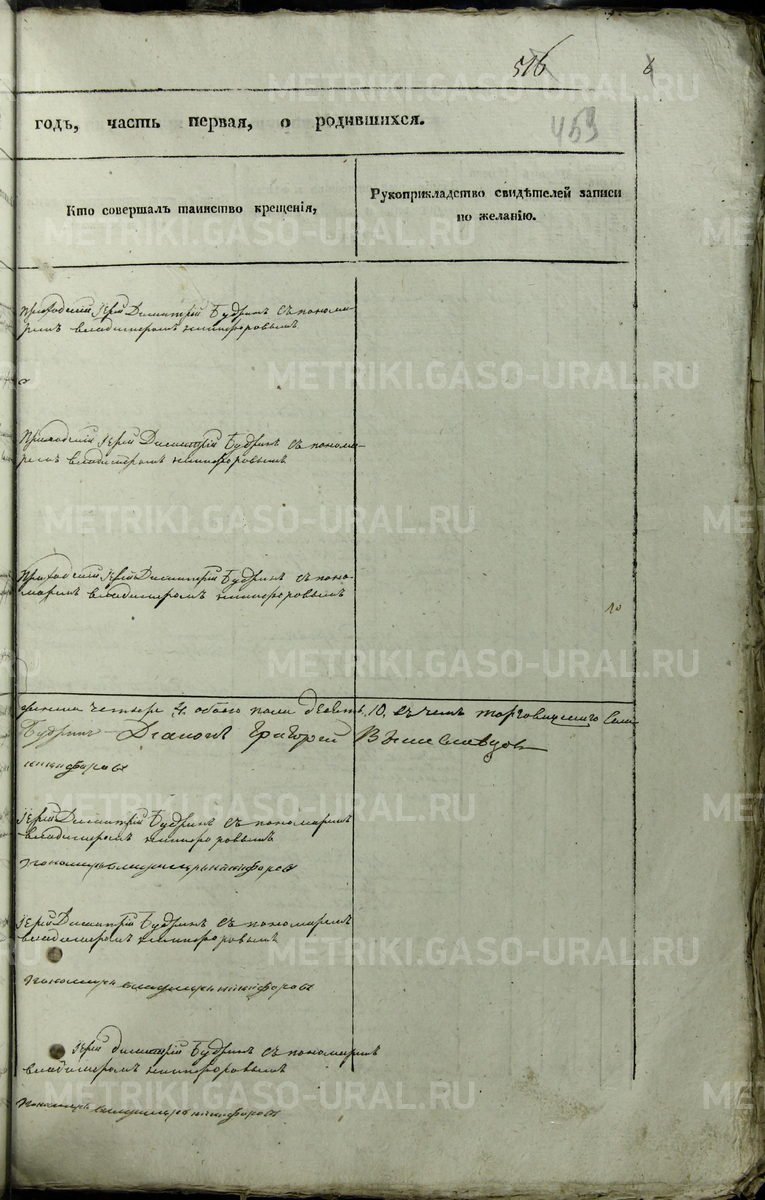 516
6
годъ, часть первая, о родившихся.
459
Кто совершалъ таинство крещенія,
Рукоприкладство свидѣтелей записи
по желанію.
Приходскій Іерей Димитрій Будринъ съ понома-
ремъ Владимеромъ Никифоровымъ
Приходскій Іерей Димитрій Будринъ съ понома-
ремъ Владимеромъ Никифоровымъ
Приходскій Іерей Димитрій Будринъ съ поно-
маремъ Владимеромъ Никифоровымъ
10
четыре 4. обоего пола десять 10. въ чемъ Торговижскаго Села
Будринъ Діаконъ Григорій
Никифоровъ
Іерей Димитрій Будринъ съ пономаремъ
Владимеромъ Никифоровымъ
Пономарь Владимиръ Никифоровъ
Іерей Димитрій Будринъ съ пономаремъ
Владимеромъ Никифоровымъ
Пономарь Владимиръ Никифоровъ
Іерей Димитрій Будринъ съ пономаремъ
Владимеромъ Никифоровымъ
Пономарь Владимиръ Никифоровъ
METRIKI.GASO-URAL.RU